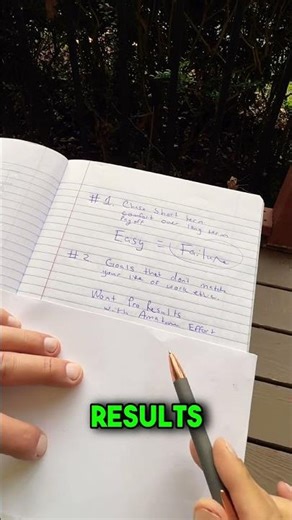 #1. Chose short term
comfort over long term
Easy = Failure
#2 Goals that don't match
your life or work ethic.
Want Pro Results
with Amateur Effort
RESULTS